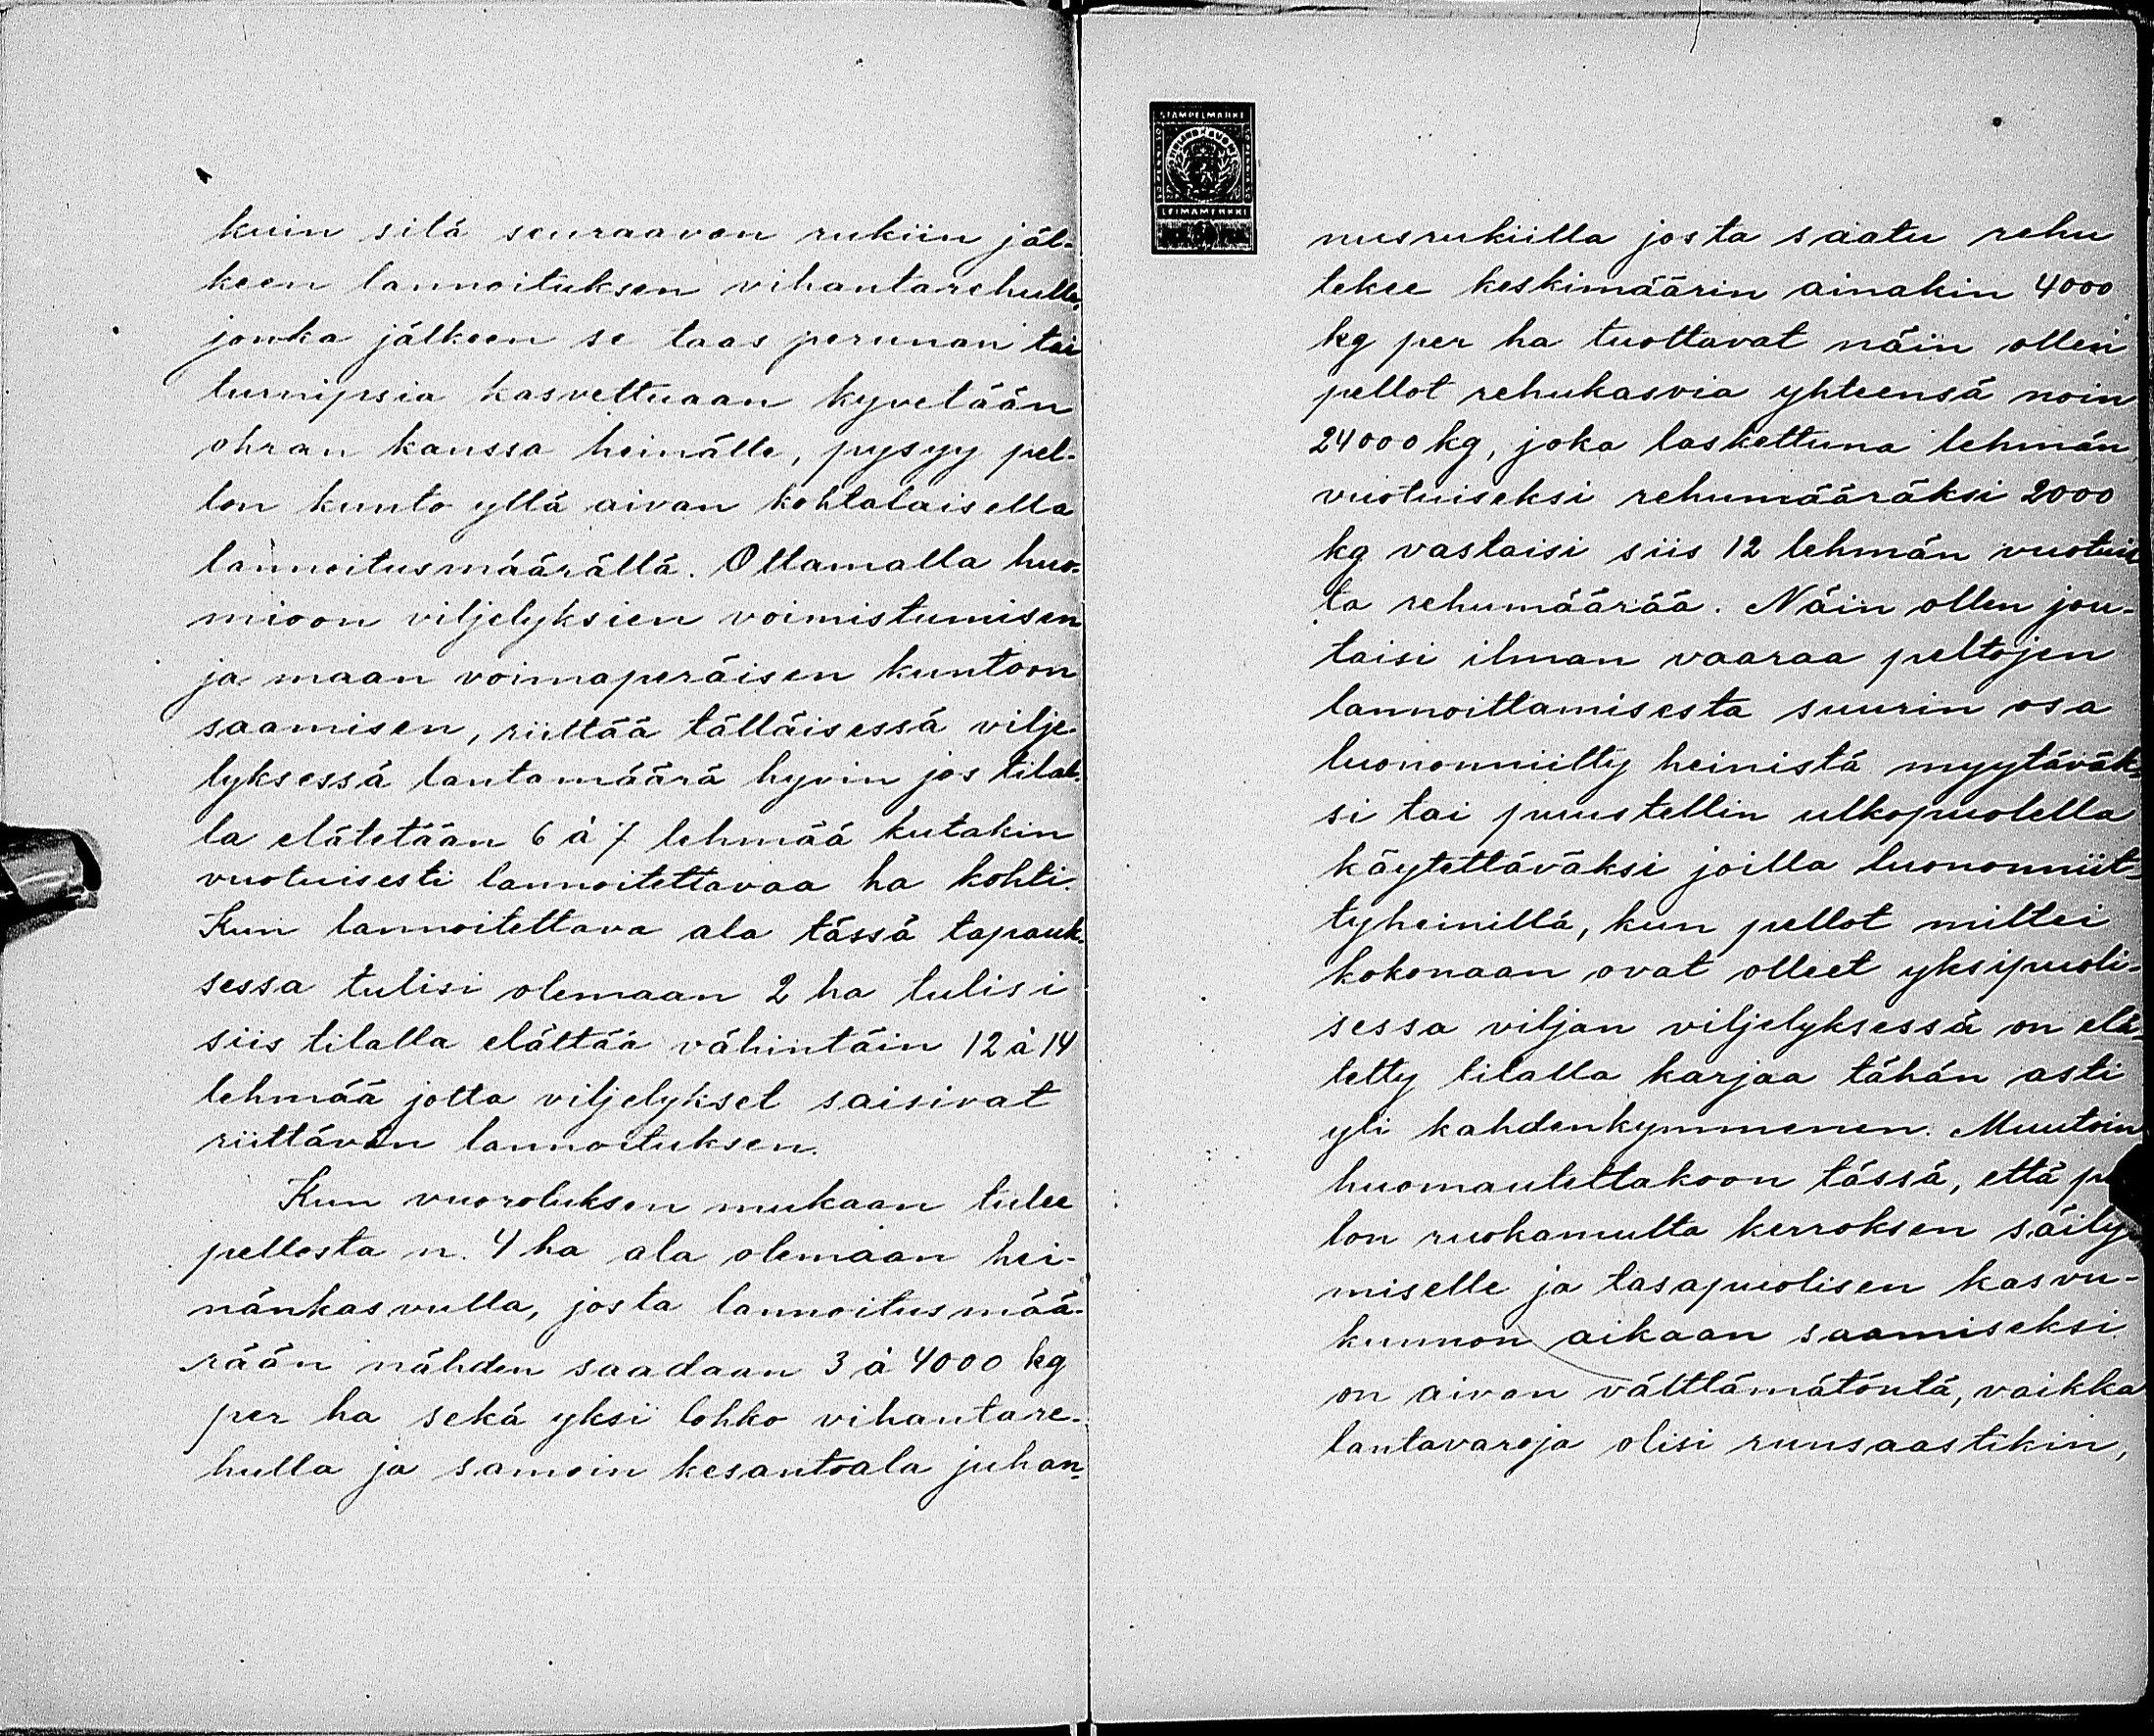 kuin sitä seuraavan rukiin jäl-
keen lannoituksen vihantarehulle,
jonka jälkeen se taas perunan tai
turnipsia kasvettuaan kyvetään
ohran kanssa heinälle, pysyy pel-
lon kunto yllä aivan kohtalaisella
lannoitusmäärällä. Ottamalla huo-
mioon viljelyksien voimistumisen
ja maan voimaperäisen kuntoon
saamisen, riittää tälläisessä vilje-
lyksessä lantamäärä hyvin jos tilal-
la elätetään 6 à 7 lehmää kutakin
vuotuisesti lannoitettavaa ha kohti.
Kun lannoitettava ala tässä tapauk-
sessa tulisi olemaan 2 ha tulisi
siis tilalla elättää vähintäin 12 à 14
lehmää jotta viljelykset saisivat
riittävän lannoituksen.
Kun vuorotuksen mukaan tulee
pellosta n. 4 ha ala olemaan hei-
nänkasvulla, josta lannoitusmää-
rään nähden saadaan 3 à 4000 kg
per ha sekä yksi lohko vihantare-
hulla ja samoin kesantoala juhan-
STÄMPELMÄRKE
FINLAND SUOMI
LEIMAMERKKI
nusrukiilla josta saatu rehu
tekee keskimäärin ainakin 4000
kg per ha tuottavat näin ollen
pellot rehukasvia yhteensä noin
24000 kg, joka laskettuna lehmän
vuotuiseksi rehumääräksi 2000
kg vastaisi siis 12 lehmän vuotuis
ta rehumäärää. Näin ollen jou-
taisi ilman vaaraa peltojen
lannoittamisesta suurin osa
luononniitty heinistä myytäväk-
si tai puustellin ulkopuolella
käytettäväksi joilla luononniit-
tyheinillä, kun pellot miltei
kokonaan ovat olleet yksipuoli-
sessa viljan viljelyksessä on elä-
tetty tilalla karjaa tähän asti
yli kahdenkymmenen. Muutoin
huomautettakoon tässä, että
lon ruokamulta kerroksen säily-
miselle ja tasapuolisen kasvu-
kunnon aikaan saamiseksi
on aivan välttämätöntä, vaikka
lantavaroja olisi runsaastikin,